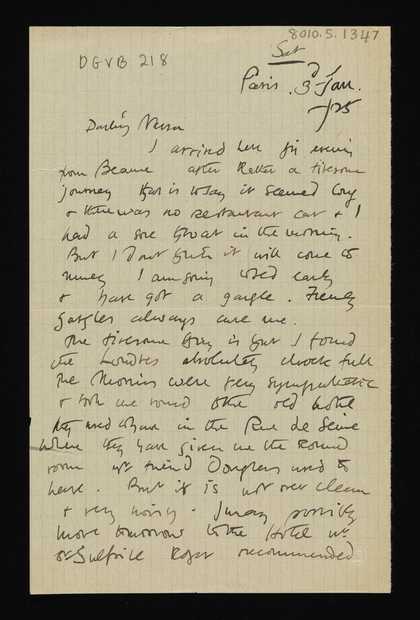 8010.5.1347
DGVB 218
Sat
Paris. 3d Jan.
/25
Darling Nessa
I arrived here fri evening
from Beaune after rather a tiresome
journey that is to say it seemed long
& there was no restaurant car & I
had a sore throat in the morning.
But I dont think it will come to
much I am going to bed early
& have got a gargle. French
gargles always cure me.
The tiresome thing is that I found
the Londres absolutely chock full
The Morins were very sympathetic
& took me round to the old hotel
they used to have in the Rue de Seine
where they have given me the round
room wh friend Douglas used to
have. But it is not over clean
& very noisy. I may possibly
move tomorrow to the Hotel in
St Sulpice Roger recommended